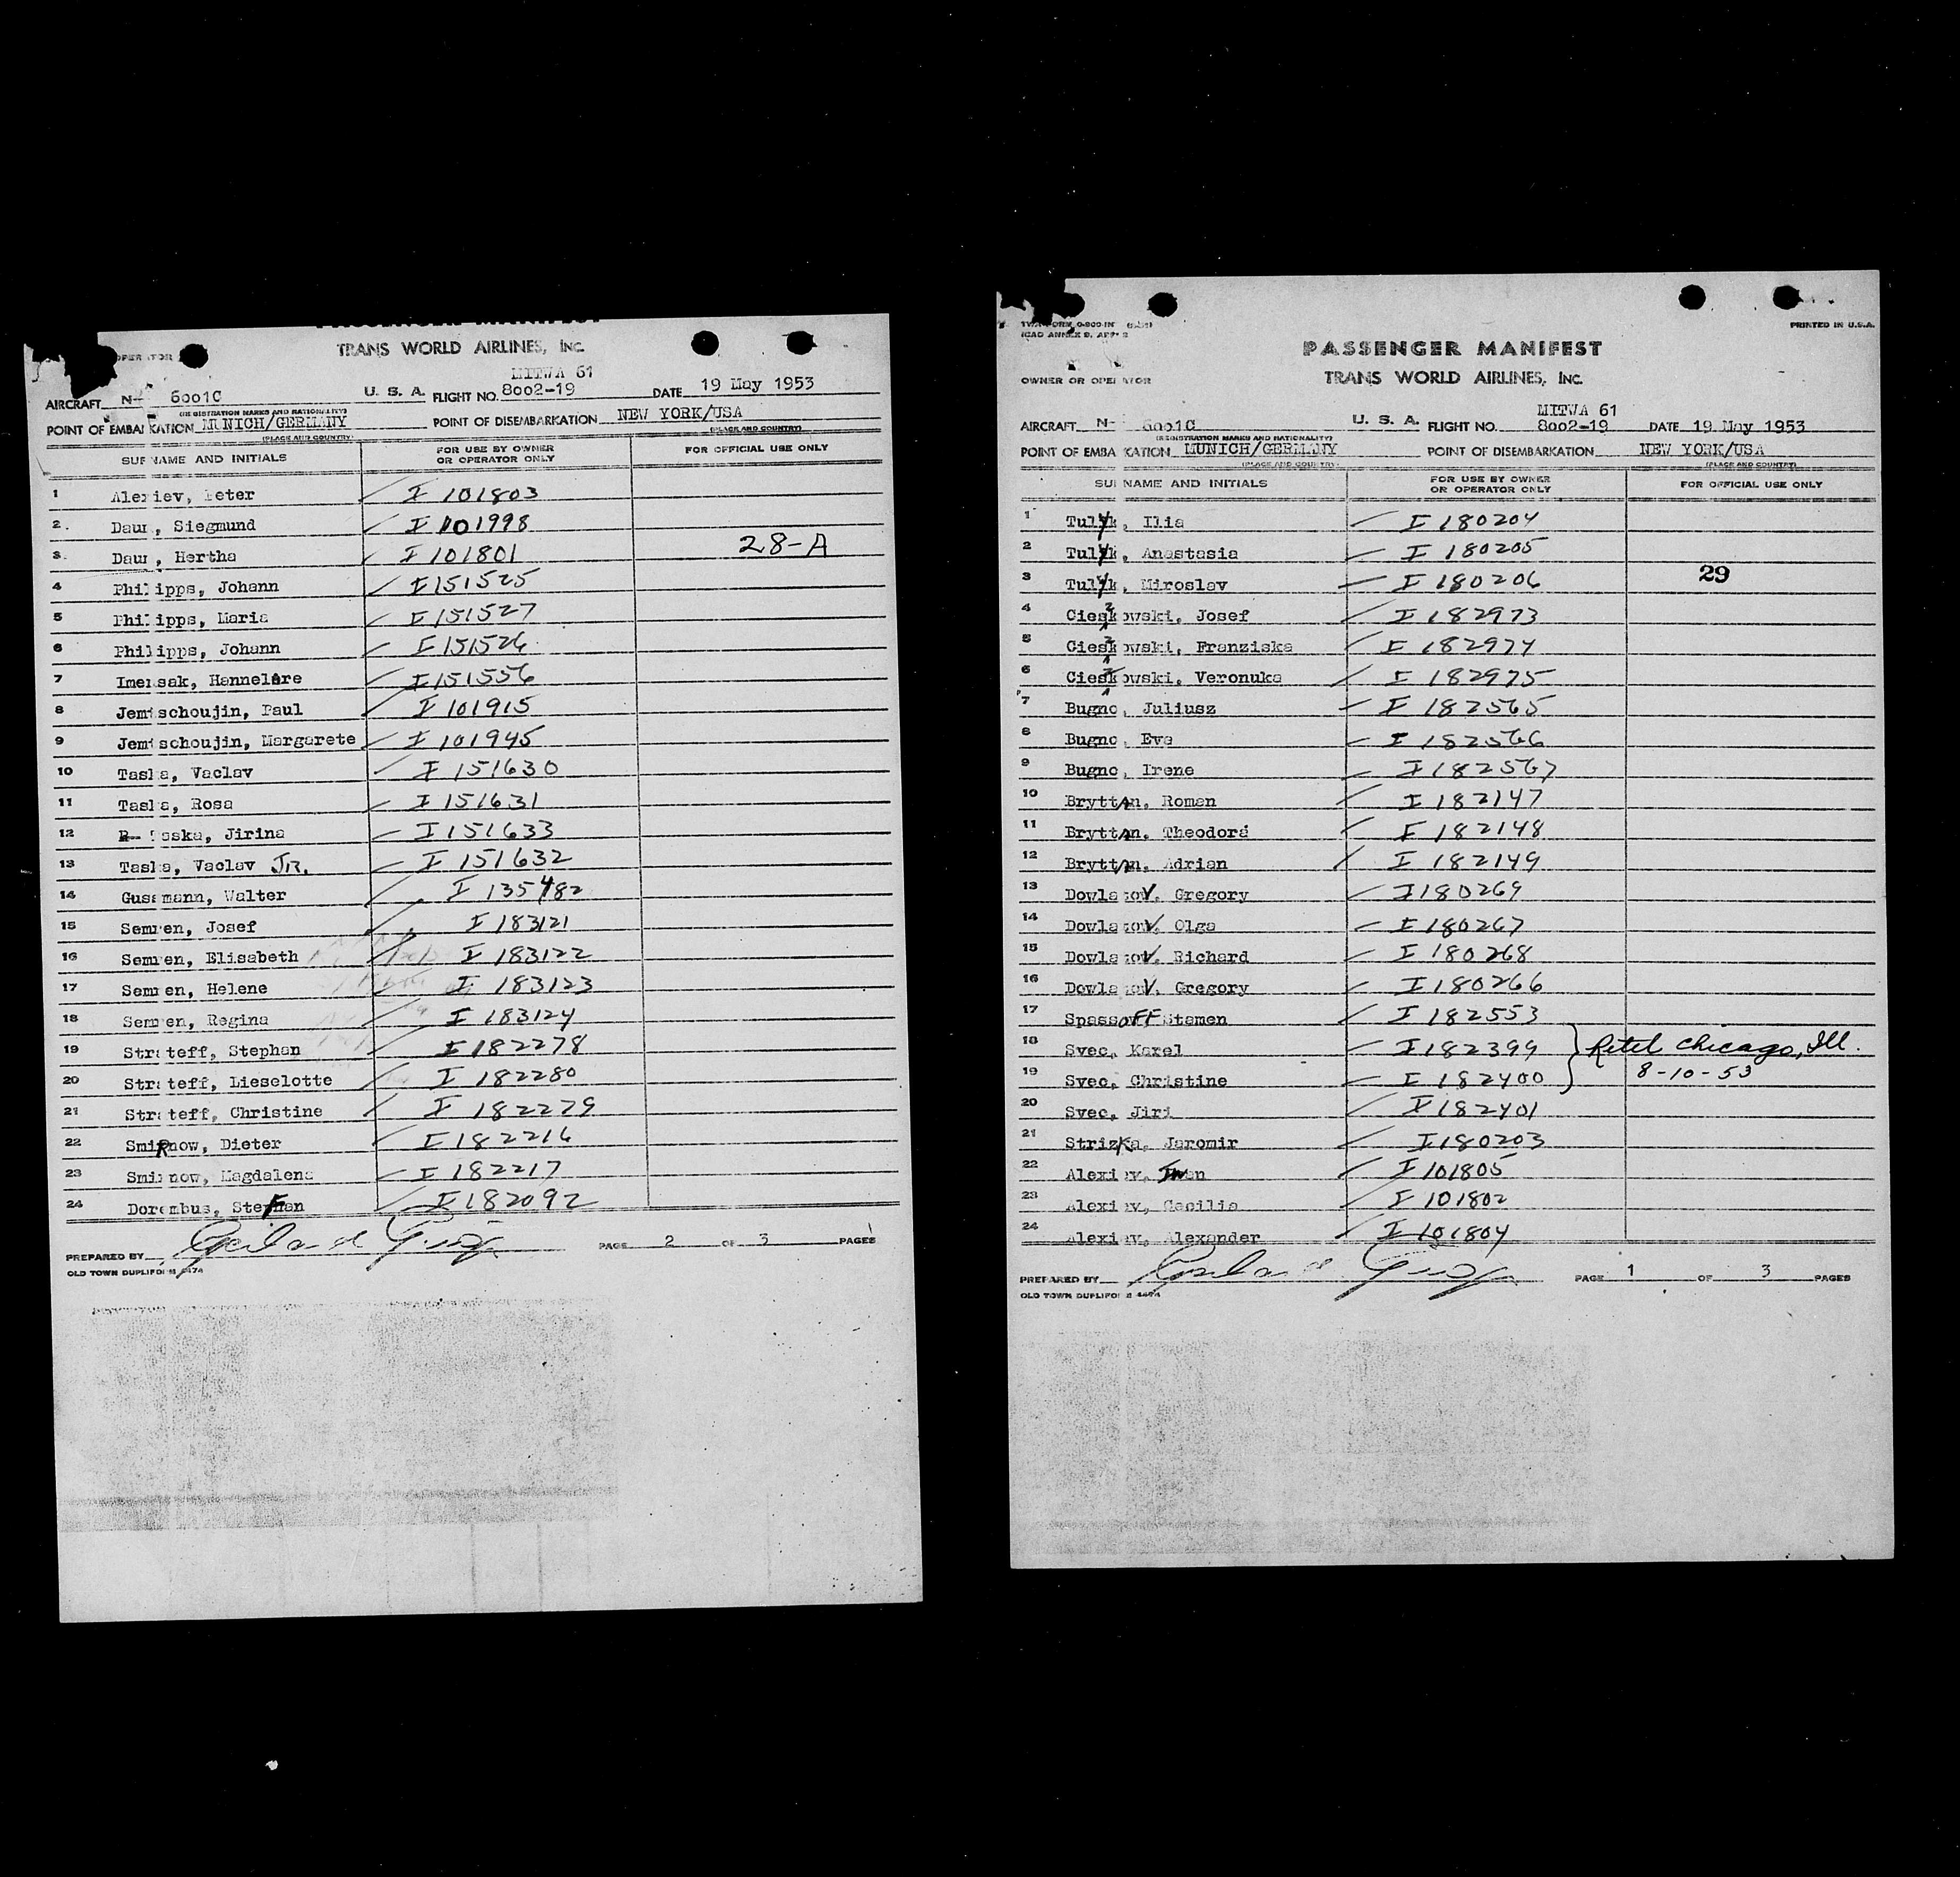 PASSENGER MANIFEST
TRANS WORLD AIRLINES, INC.
MITWA 61
AIRCRAFT N- 6001C U. S. A. FLIGHT NO. 8002-19 DATE 19 May 1953
(REGISTRATION MARKS AND NATIONALITY)
POINT OF EMBARKATION MUNICH/GERMANY POINT OF DISEMBARKATION NEW YORK/USA
(PLACE AND COUNTRY) (PLACE AND COUNTRY)
SURNAME AND INITIALS FOR USE BY OWNER OR OPERATOR ONLY FOR OFFICIAL USE ONLY
1 Alexiev, Peter I 101803
2. Daur, Siegmund I 101998
3. Daur, Hertha I 101801 28-A
4 Philipps, Johann I 151525
5 Philipps, Maria I 151527
6 Philipps, Johann I 151526
7 Imensak, Hannelore I 151556
8 Jemtschoujin, Paul I 101915
9 Jemtschoujin, Margarete I 101945
10 Taska, Vaclav I 151630
11 Taska, Rosa I 151631
12 Taska, Jirina I 151633
13 Taska, Vaclav JR. I 151632
14 Gussmann, Walter I 135482
15 Semren, Josef I 183121
16 Semren, Elisabeth I 183122
17 Semren, Helene I 183123
18 Semren, Regina I 183124
19 Strateff, Stephan I 182278
20 Strateff, Lieselotte I 182280
21 Strateff, Christine I 182279
22 SmiRnow, Dieter I 182216
23 Smirnow, Magdalena I 182217
24 Dorembus, Stefan I 182092
PREPARED BY PAGE 2 OF 3 PAGES
OLD TOWN DUPLIFORM
(ICAO ANNEX 9, APP. PRINTED IN U.S.A.
PASSENGER MANIFEST
OWNER OR OPERATOR TRANS WORLD AIRLINES, INC.
MITWA 61
AIRCRAFT N- 6001C U. S. A. FLIGHT NO. 8002-19 DATE 19 May 1953
(REGISTRATION MARKS AND NATIONALITY)
POINT OF EMBARKATION MUNICH/GERMANY POINT OF DISEMBARKATION NEW YORK/USA
(PLACE AND COUNTRY) (PLACE AND COUNTRY)
SURNAME AND INITIALS FOR USE BY OWNER OR OPERATOR ONLY FOR OFFICIAL USE ONLY
1 Tulyk, Ilia I 180204
2 Tulyk, Anastasia I 180205
3 Tulyk, Miroslav I 180206 29
4 Cieskowski, Josef I 182973
5 Cieskowski, Franziska I 182974
6 Cieskowski, Veronuka I 182975
7 Bugno, Juliusz I 182565
8 Bugno, Eva I 182566
9 Bugno, Irene I 182567
10 Bryttan, Roman I 182147
11 Bryttan, Theodora I 182148
12 Bryttan, Adrian I 182149
13 Dowlasov, Gregory I 180269
14 Dowlasov, Olga I 180267
15 Dowlasov, Richard I 180268
16 Dowlasov, Gregory I 180266
17 Spassoff Stamen I 182553
18 Svec, Karel I 182399 Retel Chicago, Ill.
19 Svec, Christine I 182400 8-10-53
20 Svec, Jiri I 182401
21 Strizka, Jaromir I 180203
22 Alexiev, Iwan I 101805
23 Alexiev, Cecilia I 101802
24 Alexiev, Alexander I 101804
PREPARED BY PAGE 1 OF 3 PAGES
OLD TOWN DUPLIFORM